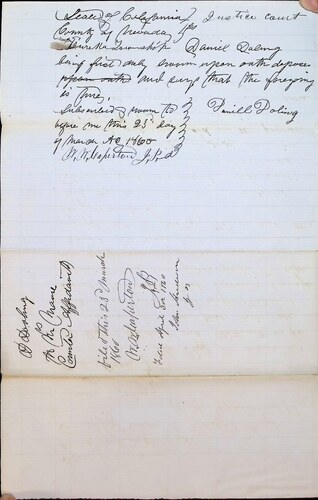 State of California } Justice court
County of Nevada } ss
Eureka Township Daniel Doling
being first duly sworn upon oath deposes
upon oath and says that the foregoing
is true,
Subscribed sworn to } Daniell Doling
before me this 23 day }
of March AD 1860 }
J. P.
D Doling
vs
Counter Affidavit
File this 23 March
1860
J P
Filed April 3d 1860